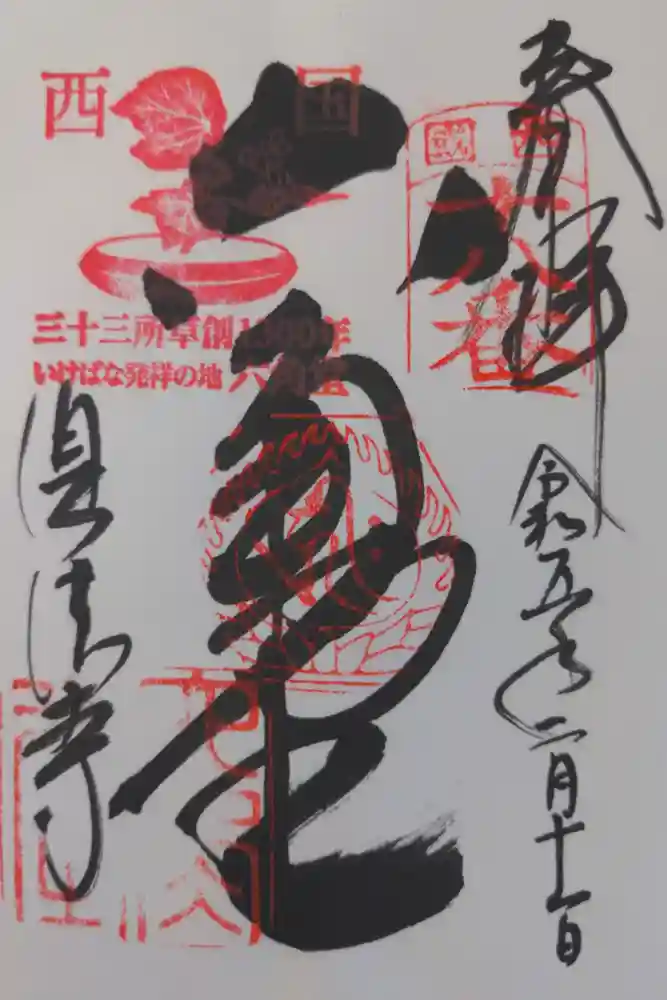 奉拝
令和五年二月十一日
西国
十八番
六角堂
西国
三十三所草創1300年
いけばな発祥の地 六角堂
頂法寺